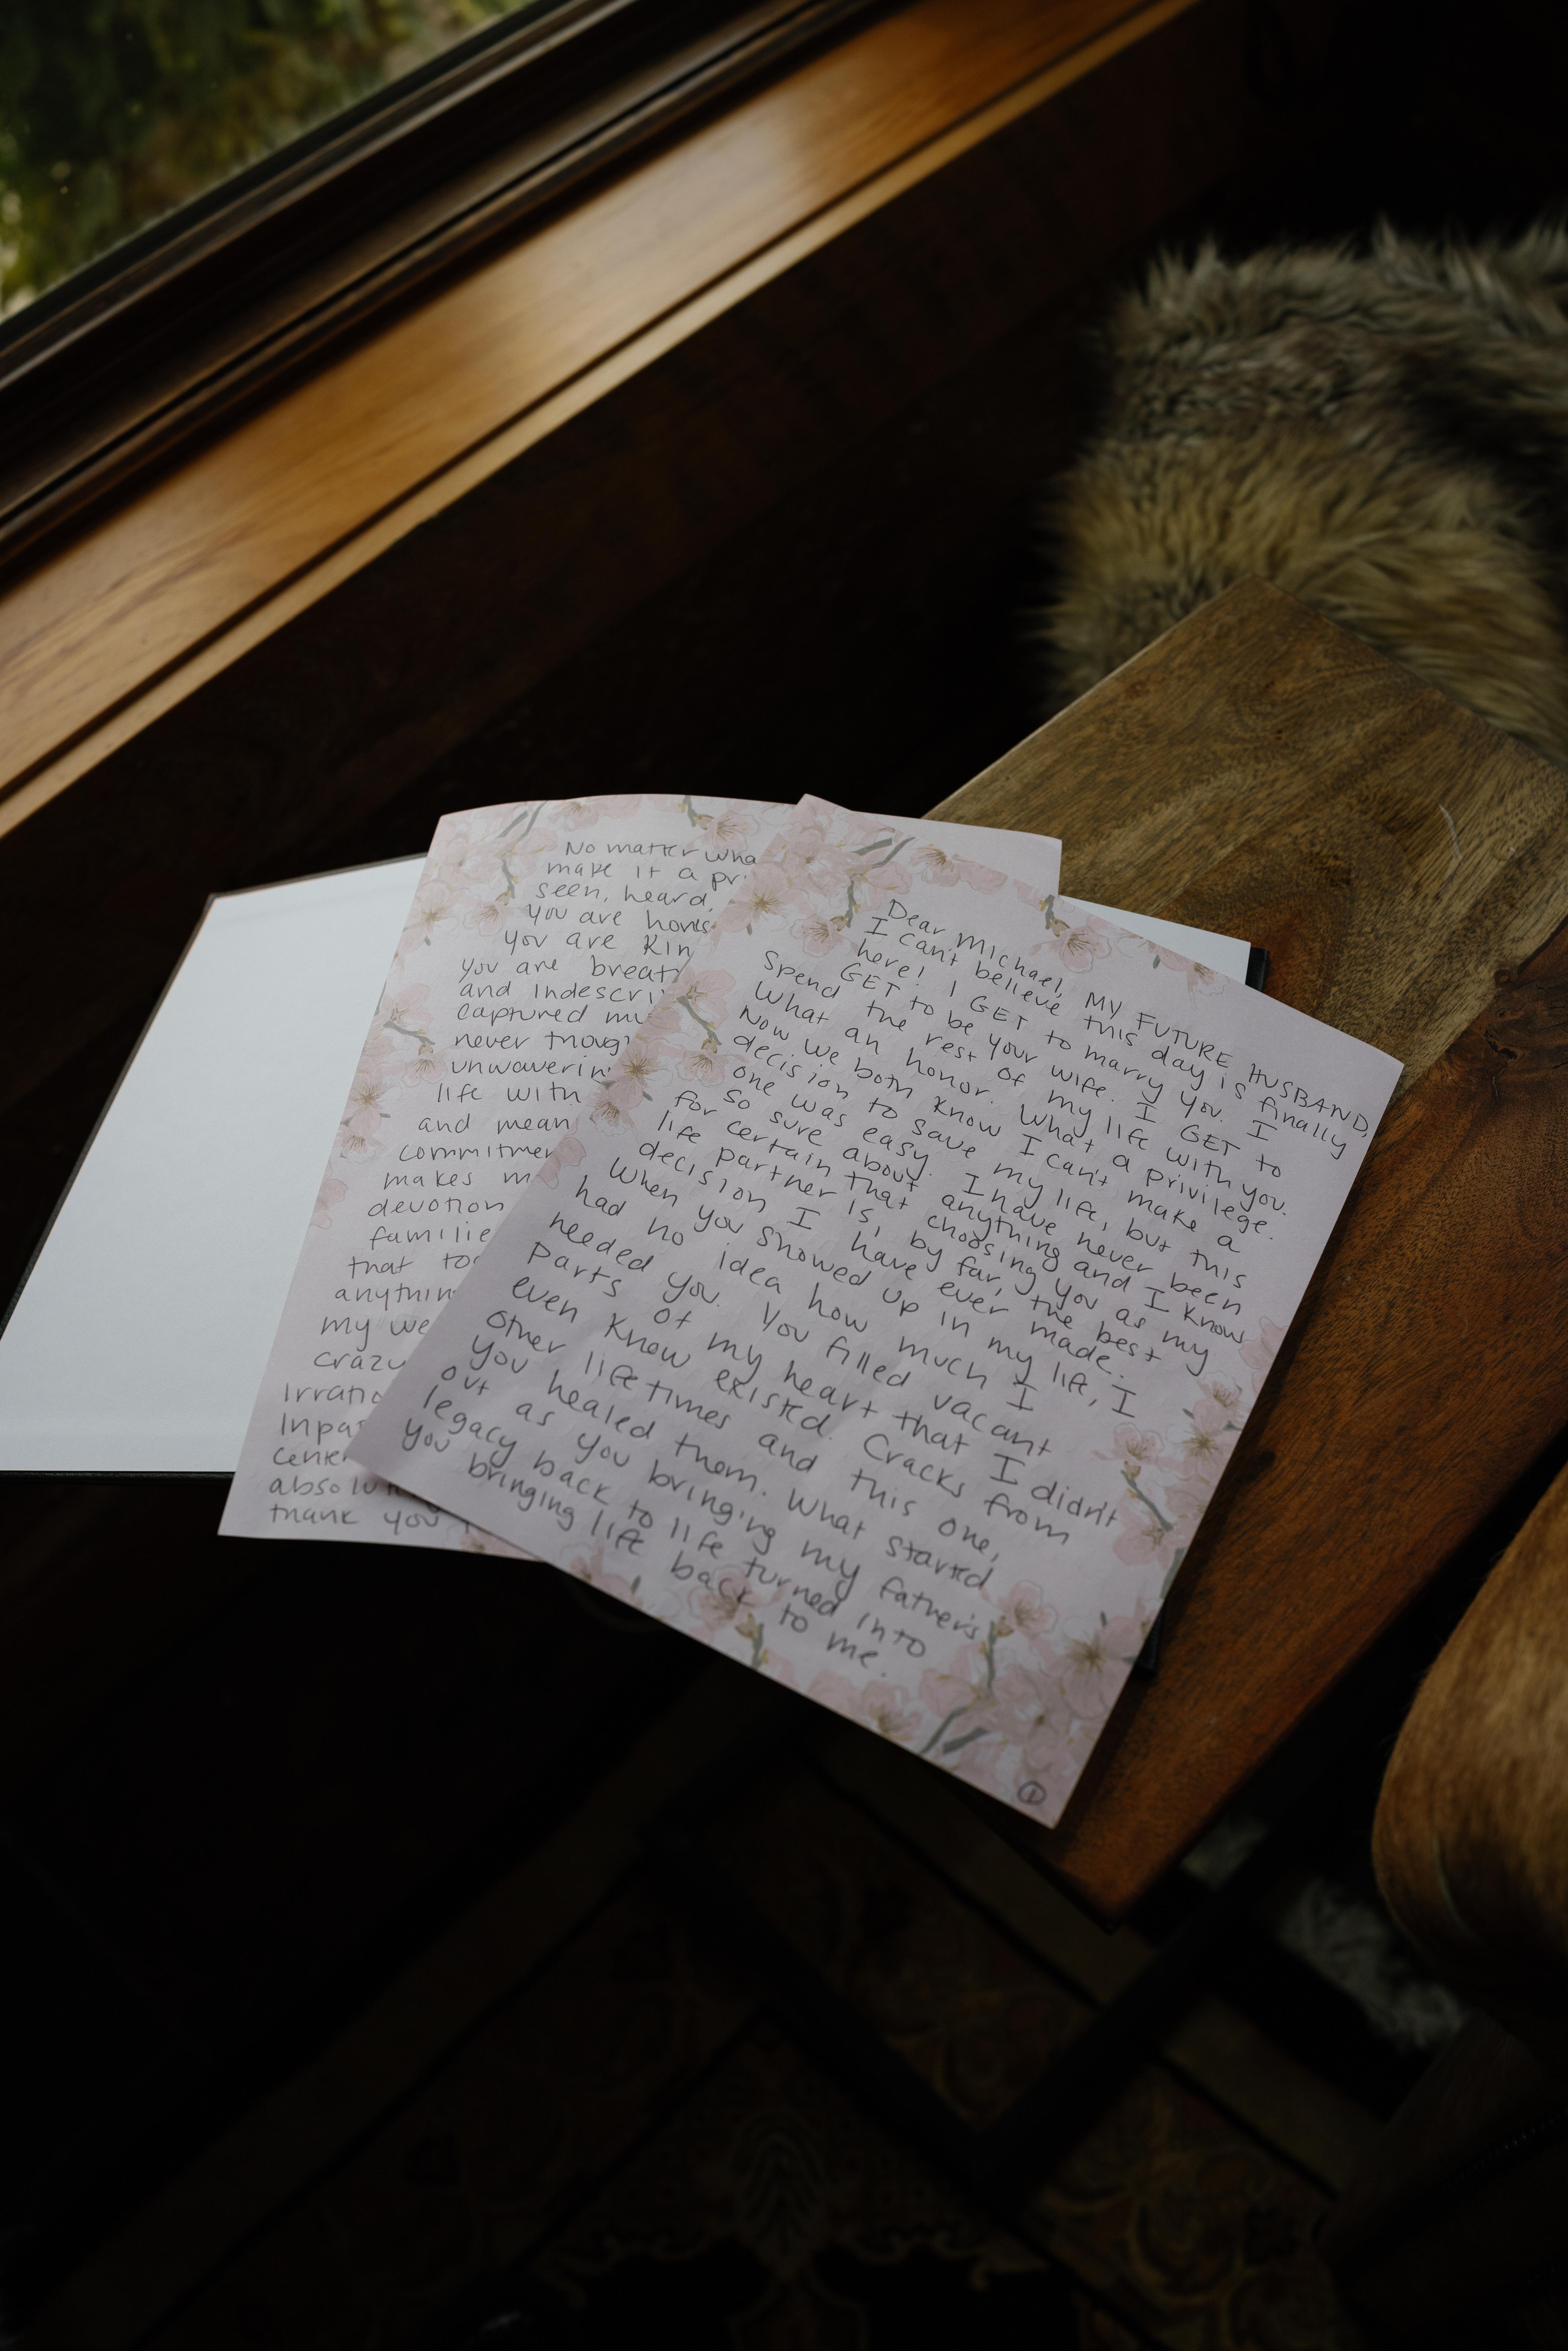 Dear Michael, MY FUTURE HUSBAND,
I can't believe this day is finally
here! I GET to marry you. I
GET to be your wife. I GET to
spend the rest of my life with you.
What an honor. What a privilege.
Now we both know I can't make a
decision to save my life, but this
one was easy. I have never been
so sure about anything and I know
for certain that choosing you as my
life partner is, by far, the best
decision I have ever made.
When you showed up in my life, I
had no idea how much I
needed you. You filled vacant
parts of my heart that I didn't
even know existed. Cracks from
other lifetimes and this one,
you healed them. What started
out as you bringing my father's
legacy back to life turned into
you bringing life back to me.
1
No matter wha
make it a pr
seen, heard,
you are hon
you are kin
you are breat
and indescri
captured my
never thoug
unwaverin
life with
and mean
commitmen
makes m
devotion
familie
that to
anythin
my we
crazy
irratio
center
absolu
thank you